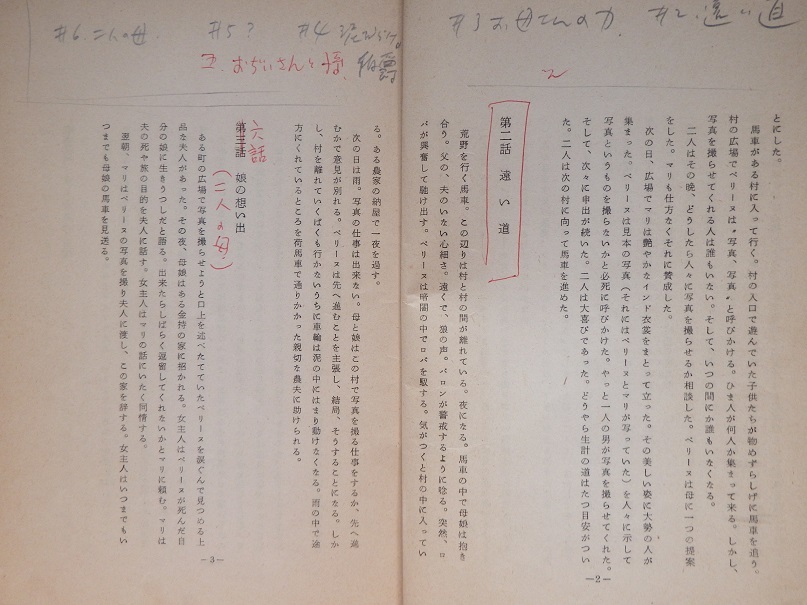 #3 お母さんの力 #2. 遠い道
とにした。
馬車がある村に入って行く。村の入口で遊んでいた子供たちが物めずらしげに馬車を追う。
村の広場でペリーヌは〝写真、写真〟と呼びかける。ひま人が何人か集まって来る。しかし、
写真を撮らせてくれる人は誰もいない。そして、いつの間にか誰もいなくなる。
二人はその晩、どうしたら人々に写真を撮らせるか相談した。ペリーヌは母に一つの提案
をした。マリも仕方なくそれに賛成した。
次の日、広場でマリは艶やかなインド衣裳をまとって立った。その美しい姿に大勢の人が
集まった。ペリーヌは見本の写真（それにはペリーヌとマリが写っていた）を人々に示して
写真というものを撮らないかと必死に呼びかけた。やっと一人の男が写真を撮らせてくれた。
そして、次々に申出が続いた。二人は大喜びであった。どうやら生計の道はたつ目安がつい
た。二人は次の村に向って馬車を進めた。
2
第二話 遠い道
荒野を行く馬車。この辺りは村と村の間が離れている。夜になる。馬車の中で母娘は抱き
合う。父の、夫のいない心細さ。遠くで、狼の声。バロンが警戒するように唸る。突然、ロ
バが興奮して馳け出す。ペリーヌは暗闇の中でロバを馭する。気がつくと村の中に入ってい
—2—
#6. 二人の母. #5? #4
五. おぢいさんと
る。ある農家の納屋で一夜を過す。
次の日は雨。写真の仕事は出来ない。母と娘はこの村で写真を撮る仕事をするか、先へ進
むかで意見が別れる。ペリーヌは先へ進むことを主張し、結局、そうすることになる。しか
し、村を離れていくばくも行かないうちに車輪は泥の中にはまり動けなくなる。雨の中で途
方にくれているところを荷馬車で通りかかった親切な農夫に助けられる。
六話
(二人の母)
第三話 娘の想い出
ある町の広場で写真を撮らせようと口上を述べたてていたペリーヌを涙ぐんで見つめる上
品な夫人があった。その夜、母娘はある金持の家に招かれる。女主人はペリーヌが死んだ自
分の娘に生きうつしだと語る。出来たらしばらく逗留してくれないかとマリに頼む。マリは
夫の死や旅の目的を夫人に話す。女主人はマリの話にいたく同情する。
翌朝、マリはペリーヌの写真を撮り夫人に渡し、この家を辞する。女主人はいつまでもい
つまでも母娘の馬車を見送る。
—3—